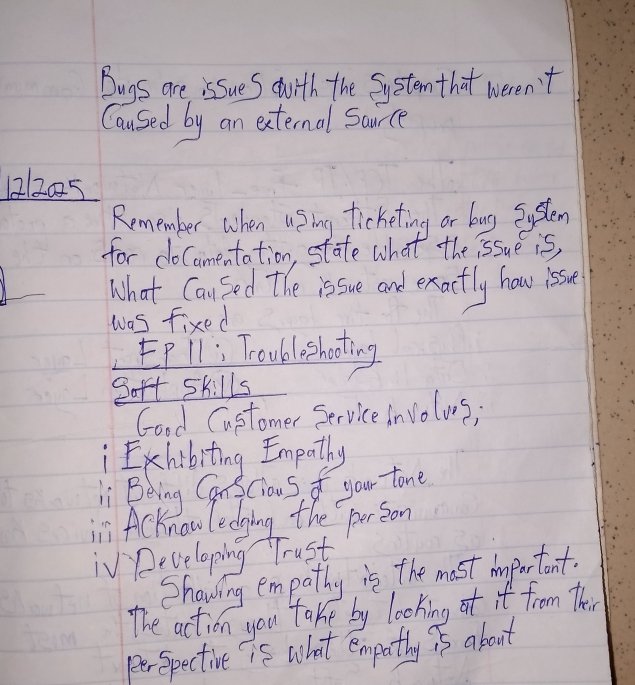 Bugs are issues with the System that weren't
Caused by an external Source
12/2025
Remember when using ticketing or bug System
for documentation, state what the issue is,
What Caused The issue and exactly how issue
was fixed
EP 11: Troubleshooting
Soft Skills
Good Customer Service involves;
i Exhibiting Empathy
ii Being Conscious of your tone
iii Acknowledging the person
iv Developing Trust
Showing empathy is the most important.
The action you take by looking at it from Their
perspective is what empathy is about